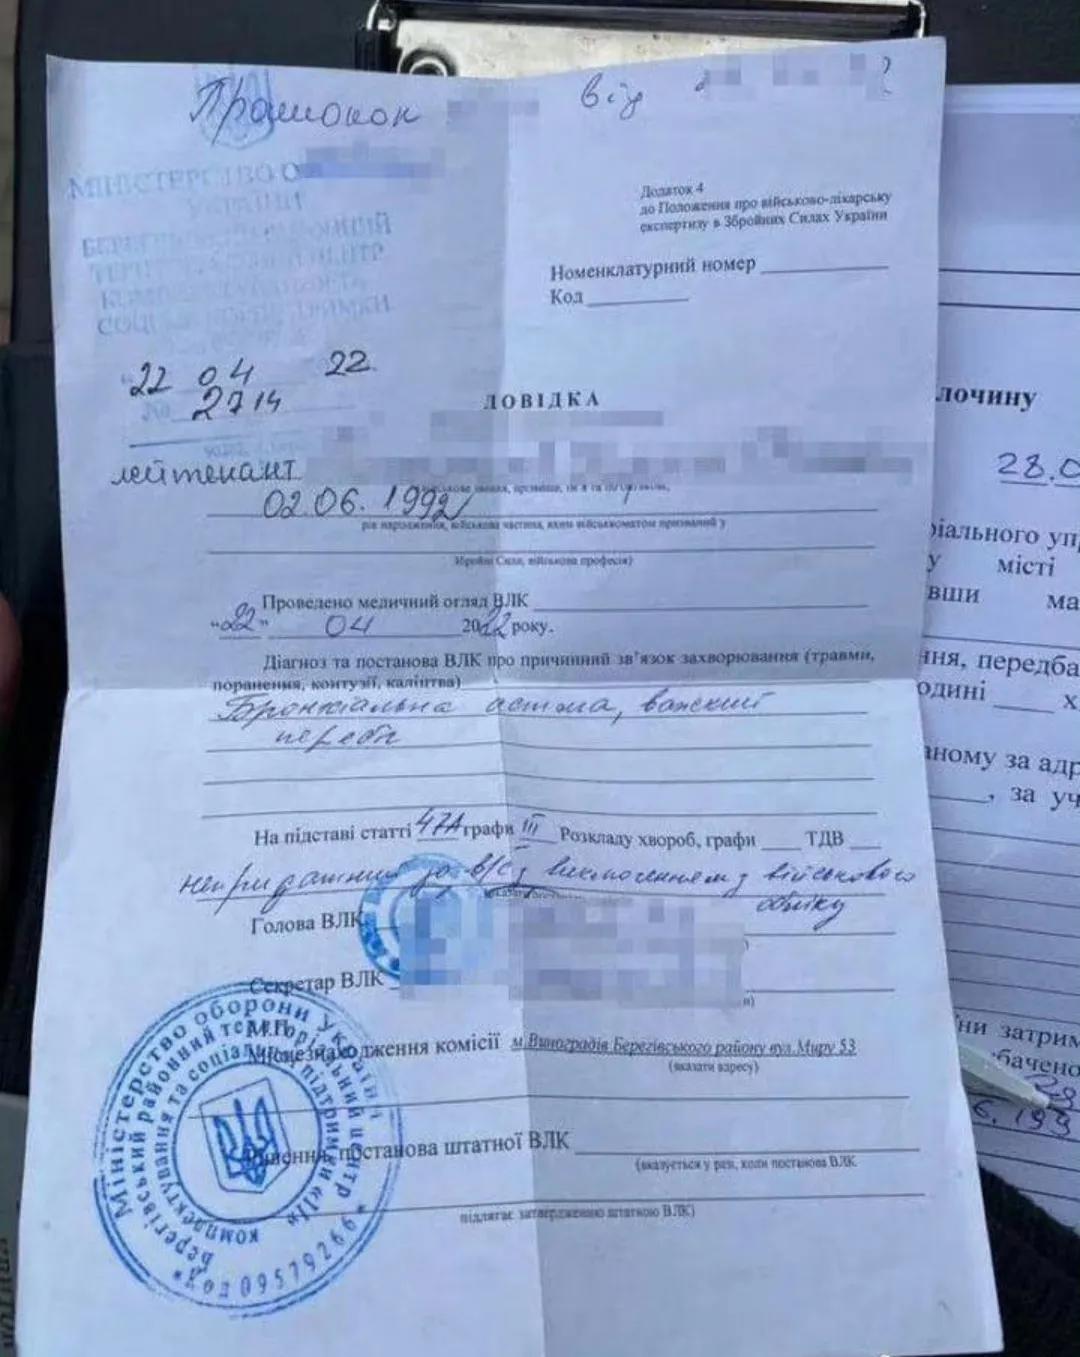 Протокол
від
МІНІСТЕРСТВО О
УКРАЇНИ
ТЕРИТОРІАЛЬНИЙ ЦЕНТР
КОМПЛЕКТУВАННЯ ТА
СОЦІАЛЬНОЇ ПІДТРИМКИ
Додаток 4
до Положення про військово-лікарську
експертизу в Збройних Силах України
Номенклатурний номер
Код
"22 04 22.
№ 2714
ДОВІДКА
лейтенант
військове звання, прізвище, ім'я та по батькові,
02.06.1992
рік народження, військова частина, яким військкоматом призваний у
Збройні Сили, військова професія)
Проведено медичний огляд ВЛК
"22" 04 2022 року.
Діагноз та постанова ВЛК про причинний зв'язок захворювання (травми,
поранення, контузії, каліцтва)
Бронхіальна астма, важкий
перебіг
На підставі статті 47А графи III Розкладу хвороб, графи ТДВ
непридатний до в/с з виключенням з військового
обліку
Голова ВЛК
Секретар ВЛК
М.П.
Місцезнаходження комісії м.Виноградів Берегівського району вул.Миру 53
(вказати адресу)
постанова штатної ВЛК
(вказується у разі, коли постанова ВЛК
підлягає затвердженню штатною ВЛК)
Міністерство оборони України
Берегівський районний територіальний центр
комплектування та соціальної підтримки
код 09579269
лочину
28.0
ріального упр
у місті
вши ма
ння, передба
одині х
аному за адр
, за уч
ни затрим
бачено